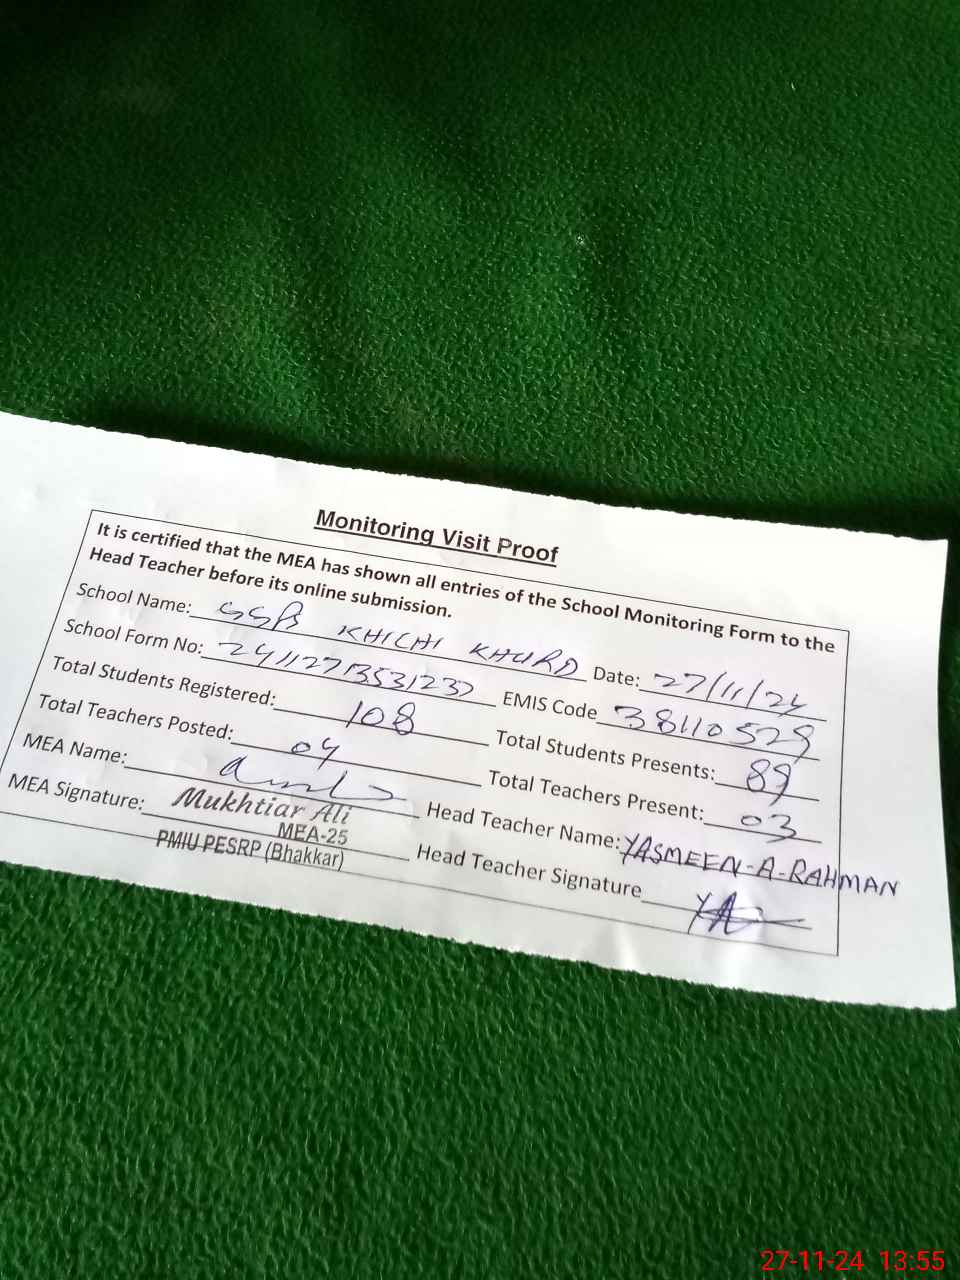 Monitoring Visit Proof
It is certified that the MEA has shown all entries of the School Monitoring Form to the
Head Teacher before its online submission.
School Name: GGPS KHICHI KHURD Date: 27/11/24
School Form No: EMIS Code 38110529
Total Students Registered: 108 Total Students Presents: 89
Total Teachers Posted: 04 Total Teachers Present: 03
MEA Name: Head Teacher Name: YASMEEN-A-RAHMAN
MEA Signature: Mukhtiar Ali Head Teacher Signature YA
MEA-25
PMIU PESRP (Bhakkar)
27-11-24 13:55